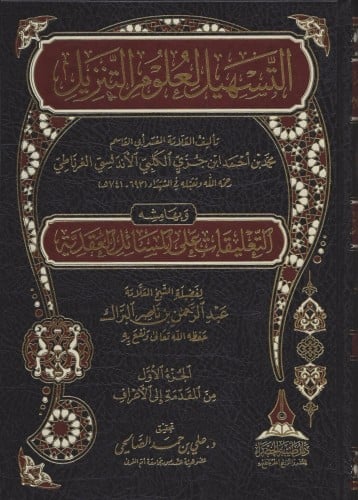 التسهيل لعلوم التنزيل
تأليف العلامة المفسر أبي القاسم
محمد بن أحمد ابن جزي الكلبي الأندلسي الغرناطي
رحمه الله وتقبله في الشهداء (٦٩٣ - ٧٤١هـ)
وبهامشه
التعليقات على المسائل العقدية
لفضيلة الشيخ العلامة
عبد الرحمن بن ناصر البراك
حفظه الله تعالى ونفع به
الجزء الأول
من المقدمة إلى الأعراف
تحقيق
د. علي بن حمد الصالحي
عضو هيئة التدريس بجامعة أم القرى
دار طيبة الخضراء